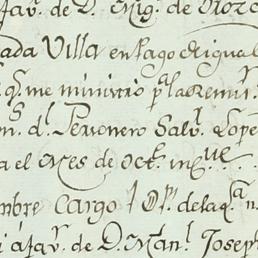 afav.r de D. Mig.l de More
ada Villa en Pago de igual
q.e me ministró p.a la Remis.n
m.s d.l Personero Salv.r Lope
a el Mes de Oct.e inq.ue
mbre Cargo 1 Of.l de la q.a n
i afav.r de D. Man.l Joseph